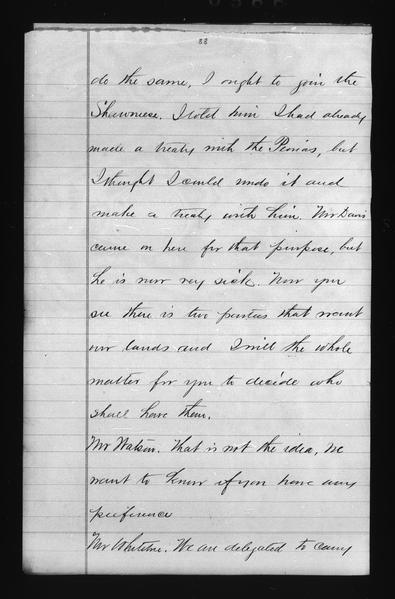 88
do the same, I ought to join the
Shawneese. I told him I had already
made a treaty with the Peorias, but
I thought I could undo it and
make a treaty with him. Mr Davis
came on here for that purpose, but
he is now very sick. Now you
see there is two parties that want
our lands and I will the whole
matter for you to decide who
shall have them.
Mr Watson. That is not the idea, we
want to know if you have any
preference
Mr Whitetree. We are delegated to carry